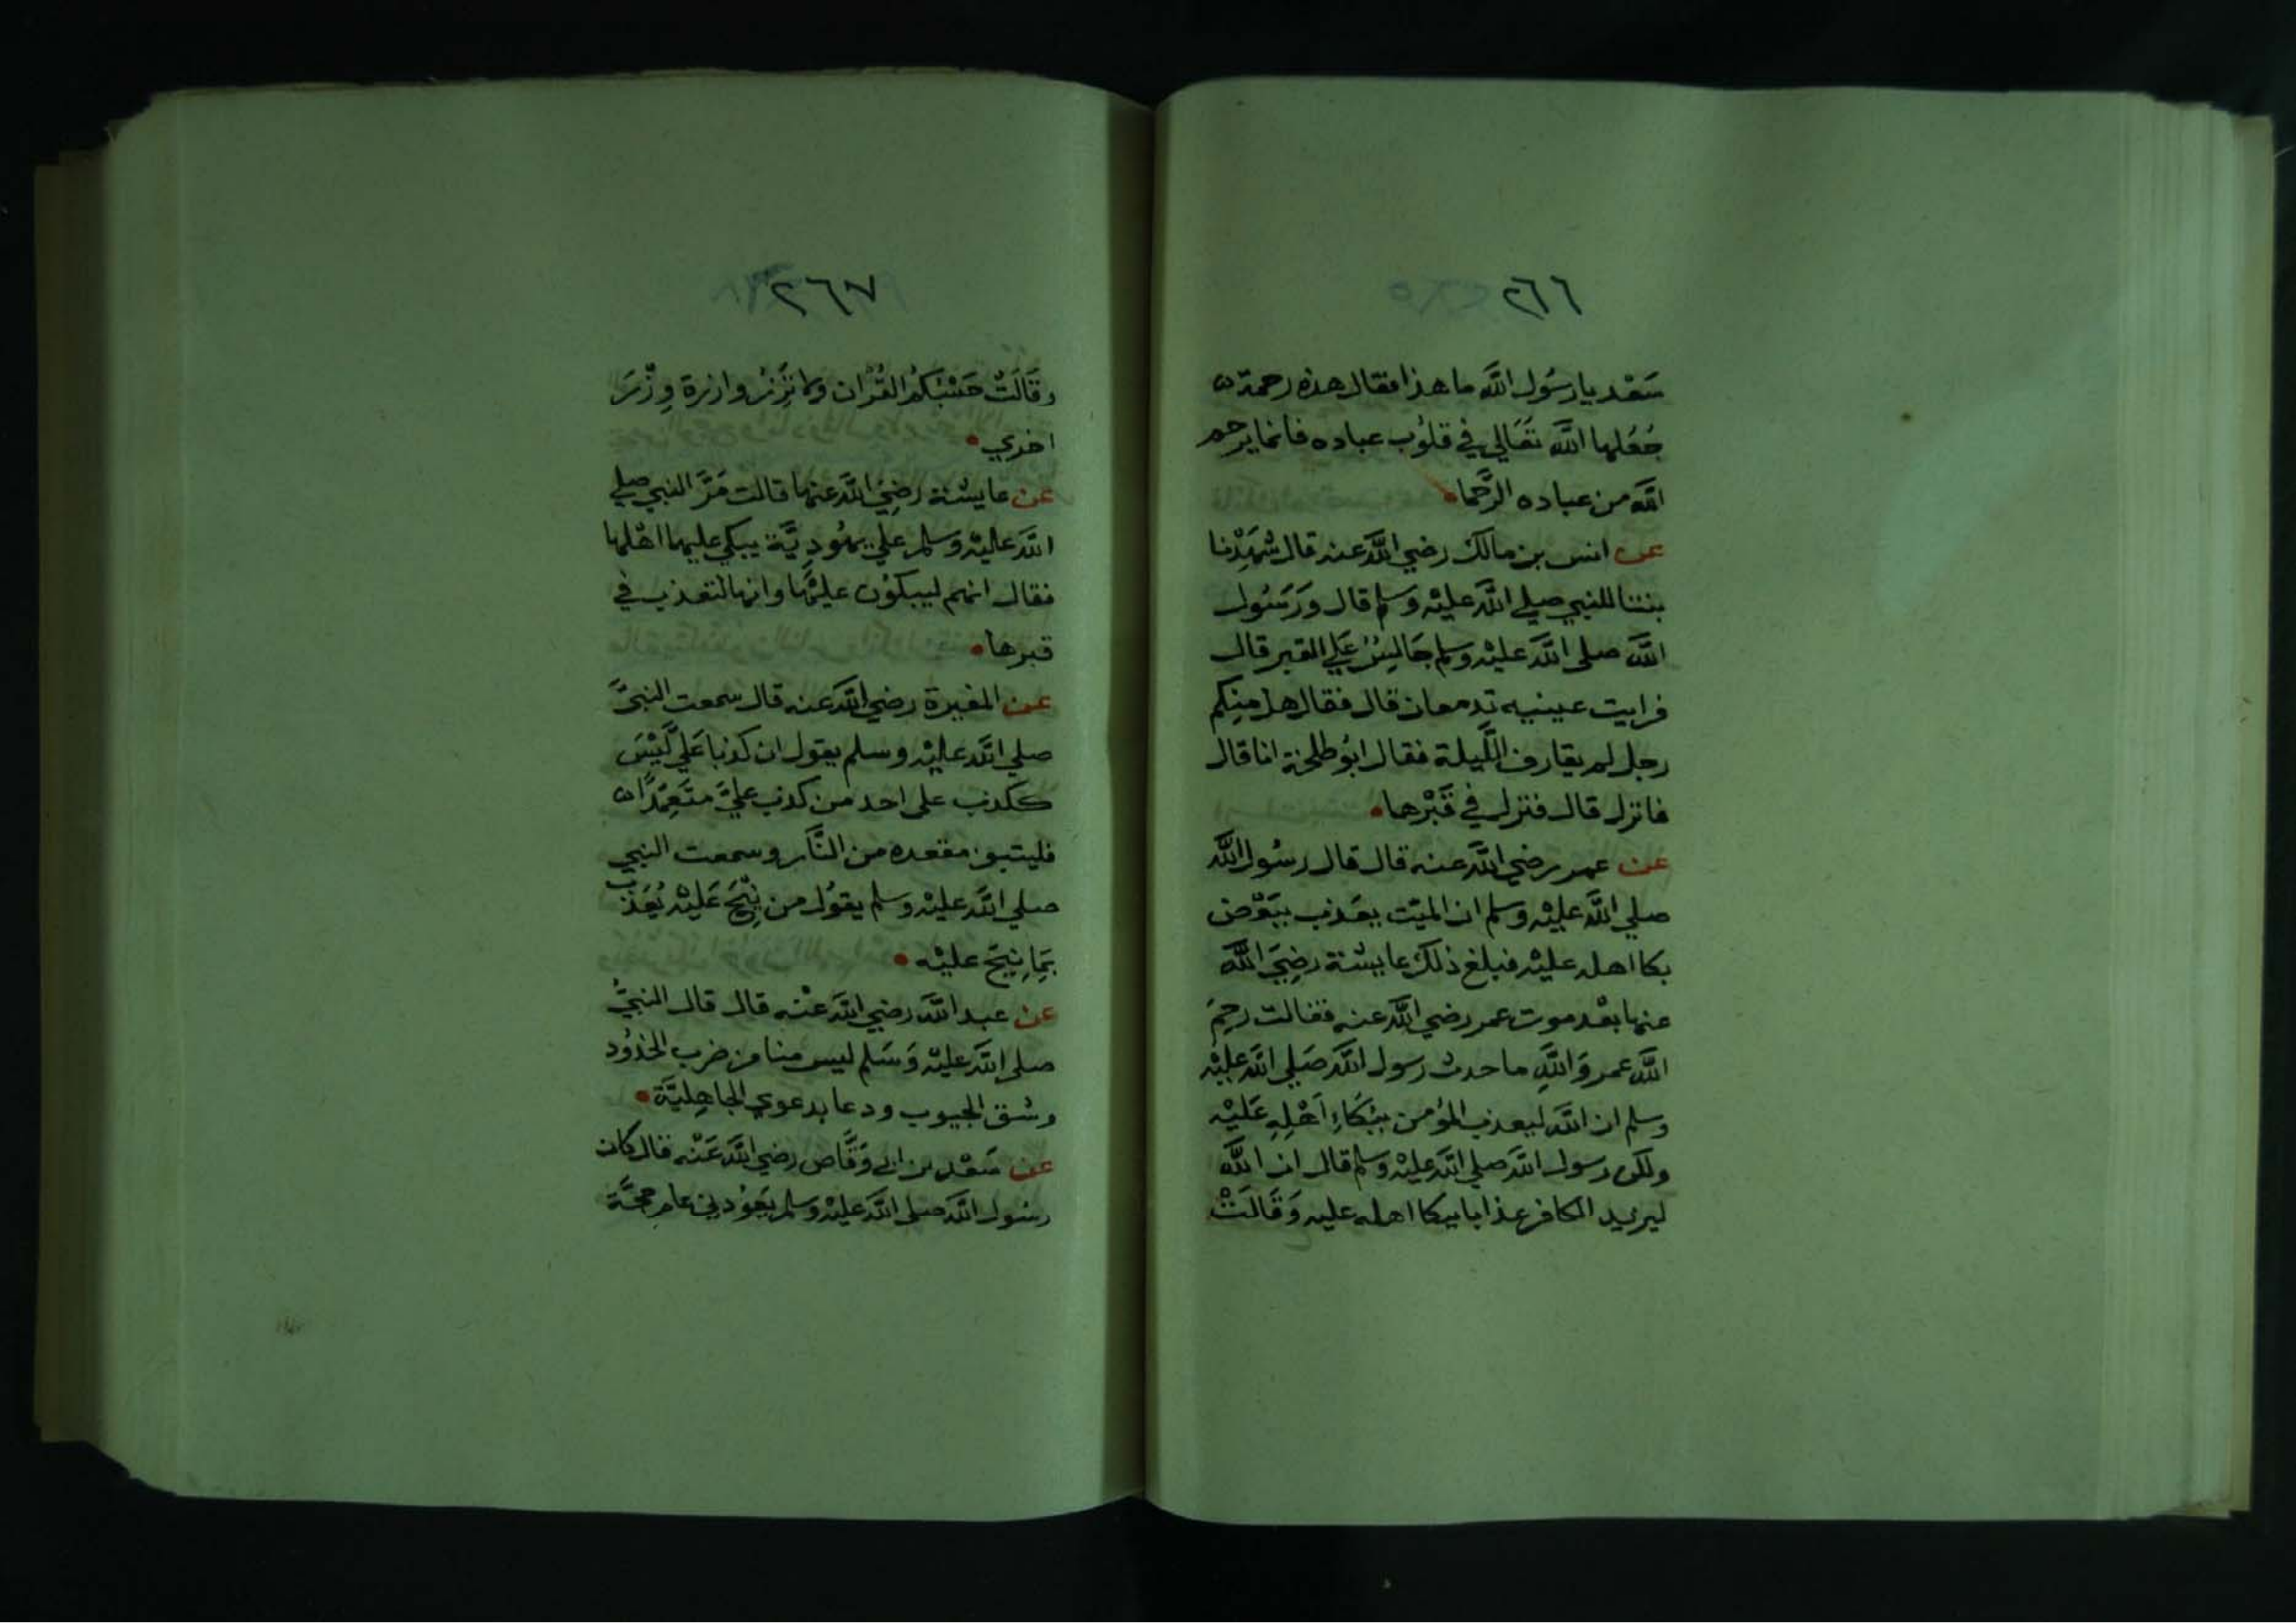 ٢٦٦
سَعْد يا رسُول الله ما هذا فقال هذه رحمة
جُعَلها الله تعَالي في قلوُب عباده فانما يرحم
الله من عباده الرَّحما
عن انس بن مالك رضي الله عنه قال شهِدْنا
بنتا للنبي صلي الله عليْه وسلم قال وَرَسُول
الله صلي الله عليْه وسلم جَالِسٌ عَلي القبر قال
فرايت عينيه تدمعان قال فقال هل منِكم
رجل لم يقارف اللَّيلة فقال ابُو طلحة انا قال
فانزل قال فنزل في قَبْرها
عن عمر رضي الله عنه قال قال رسُول الله
صلي الله عليْه وسلم ان الميّت يعَذب ببَعْض
بكا اهله عليْه فبلغ ذلك عايشة رضِيَ الله
عنها بعْد موت عمر رضي الله عنه فقالت رحِمَ
الله عمر وَاللهِ ما حدث رسول الله صَلي الله عليْه
وسلم ان الله ليعذب المؤمن ببُكَاءِ اَهْلِهِ عَليْه
ولكن رسول الله صلي الله عليْه وسلم قال ان الله
ليزيد الكافر عذابا ببكا اهله عليه وَقَالَتْ
٢٦٧
وقَالَتْ حَسْبُكمُ القُرْان ولا تَزِرُ وازرة وِزْرَ
اخري
عن عايشة رضِيَ الله عنها قالت مَرَّ النبي صلي
الله عليْه وسلم علي يهُودِيَّة يبكي عليها اهْلها
فقال انهم ليبكوُن عليْها وانها لتعذب في
قبرها
عن المغيرة رضي الله عنه قال سمعت النبيَّ
صلي الله عليْه وسلم يقول ان كذبا عَلي ليْسَ
ككذب على احد من كذب عليَّ متَعِمّدًا
فليتبو مقعده من النَّار وسمعت النبي
صلي الله عليْه وسلم يقوُل من نِيْحَ عَليْه يُعَذب
بمَا نِيحَ عليْه
عن عبد الله رضي الله عنْه قال قال النبيُّ
صلي الله عليْه وَسَلم ليس منا من ضرب الخدُود
وشق الجيوب ودعا بدعوي الجاهِليَّة
عن سَعْد بن ابي وَقَّاص رضي الله عَنْه قال كان
رسُول الله صلي الله عليْه وسلم يَعوُدني عام حجَّة